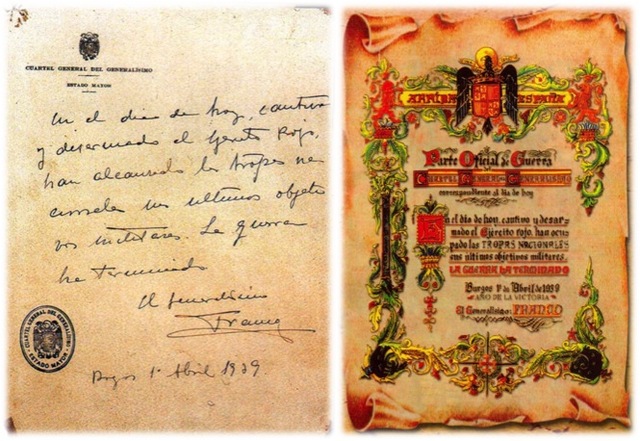 CUARTEL GENERAL DEL GENERALÍSIMO
ESTADO MAYOR
En el dia de hoy, cautivo
y desarmado el Ejercito Rojo,
han alcanzado las tropas na
cionales sus ultimos objeti
vos militares. La guerra
ha terminado
El Generalisimo
Franco
Burgos 1º Abril 1939
CUARTEL GENERAL DEL GENERALISIMO
ESTADO MAYOR
ARRIBA ESPAÑA
Parte Oficial de Guerra
CUARTEL GENERAL GENERALISIMO
correspondiente al día de hoy
En el día de hoy, cautivo y desar-
mado el Ejército rojo, han ocu-
pado las TROPAS NACIONALES
sus últimos objetivos militares.
LA GUERRA HA TERMINADO
Burgos 1º de Abril de 1939
AÑO DE LA VICTORIA
El Generalísimo: FRANCO